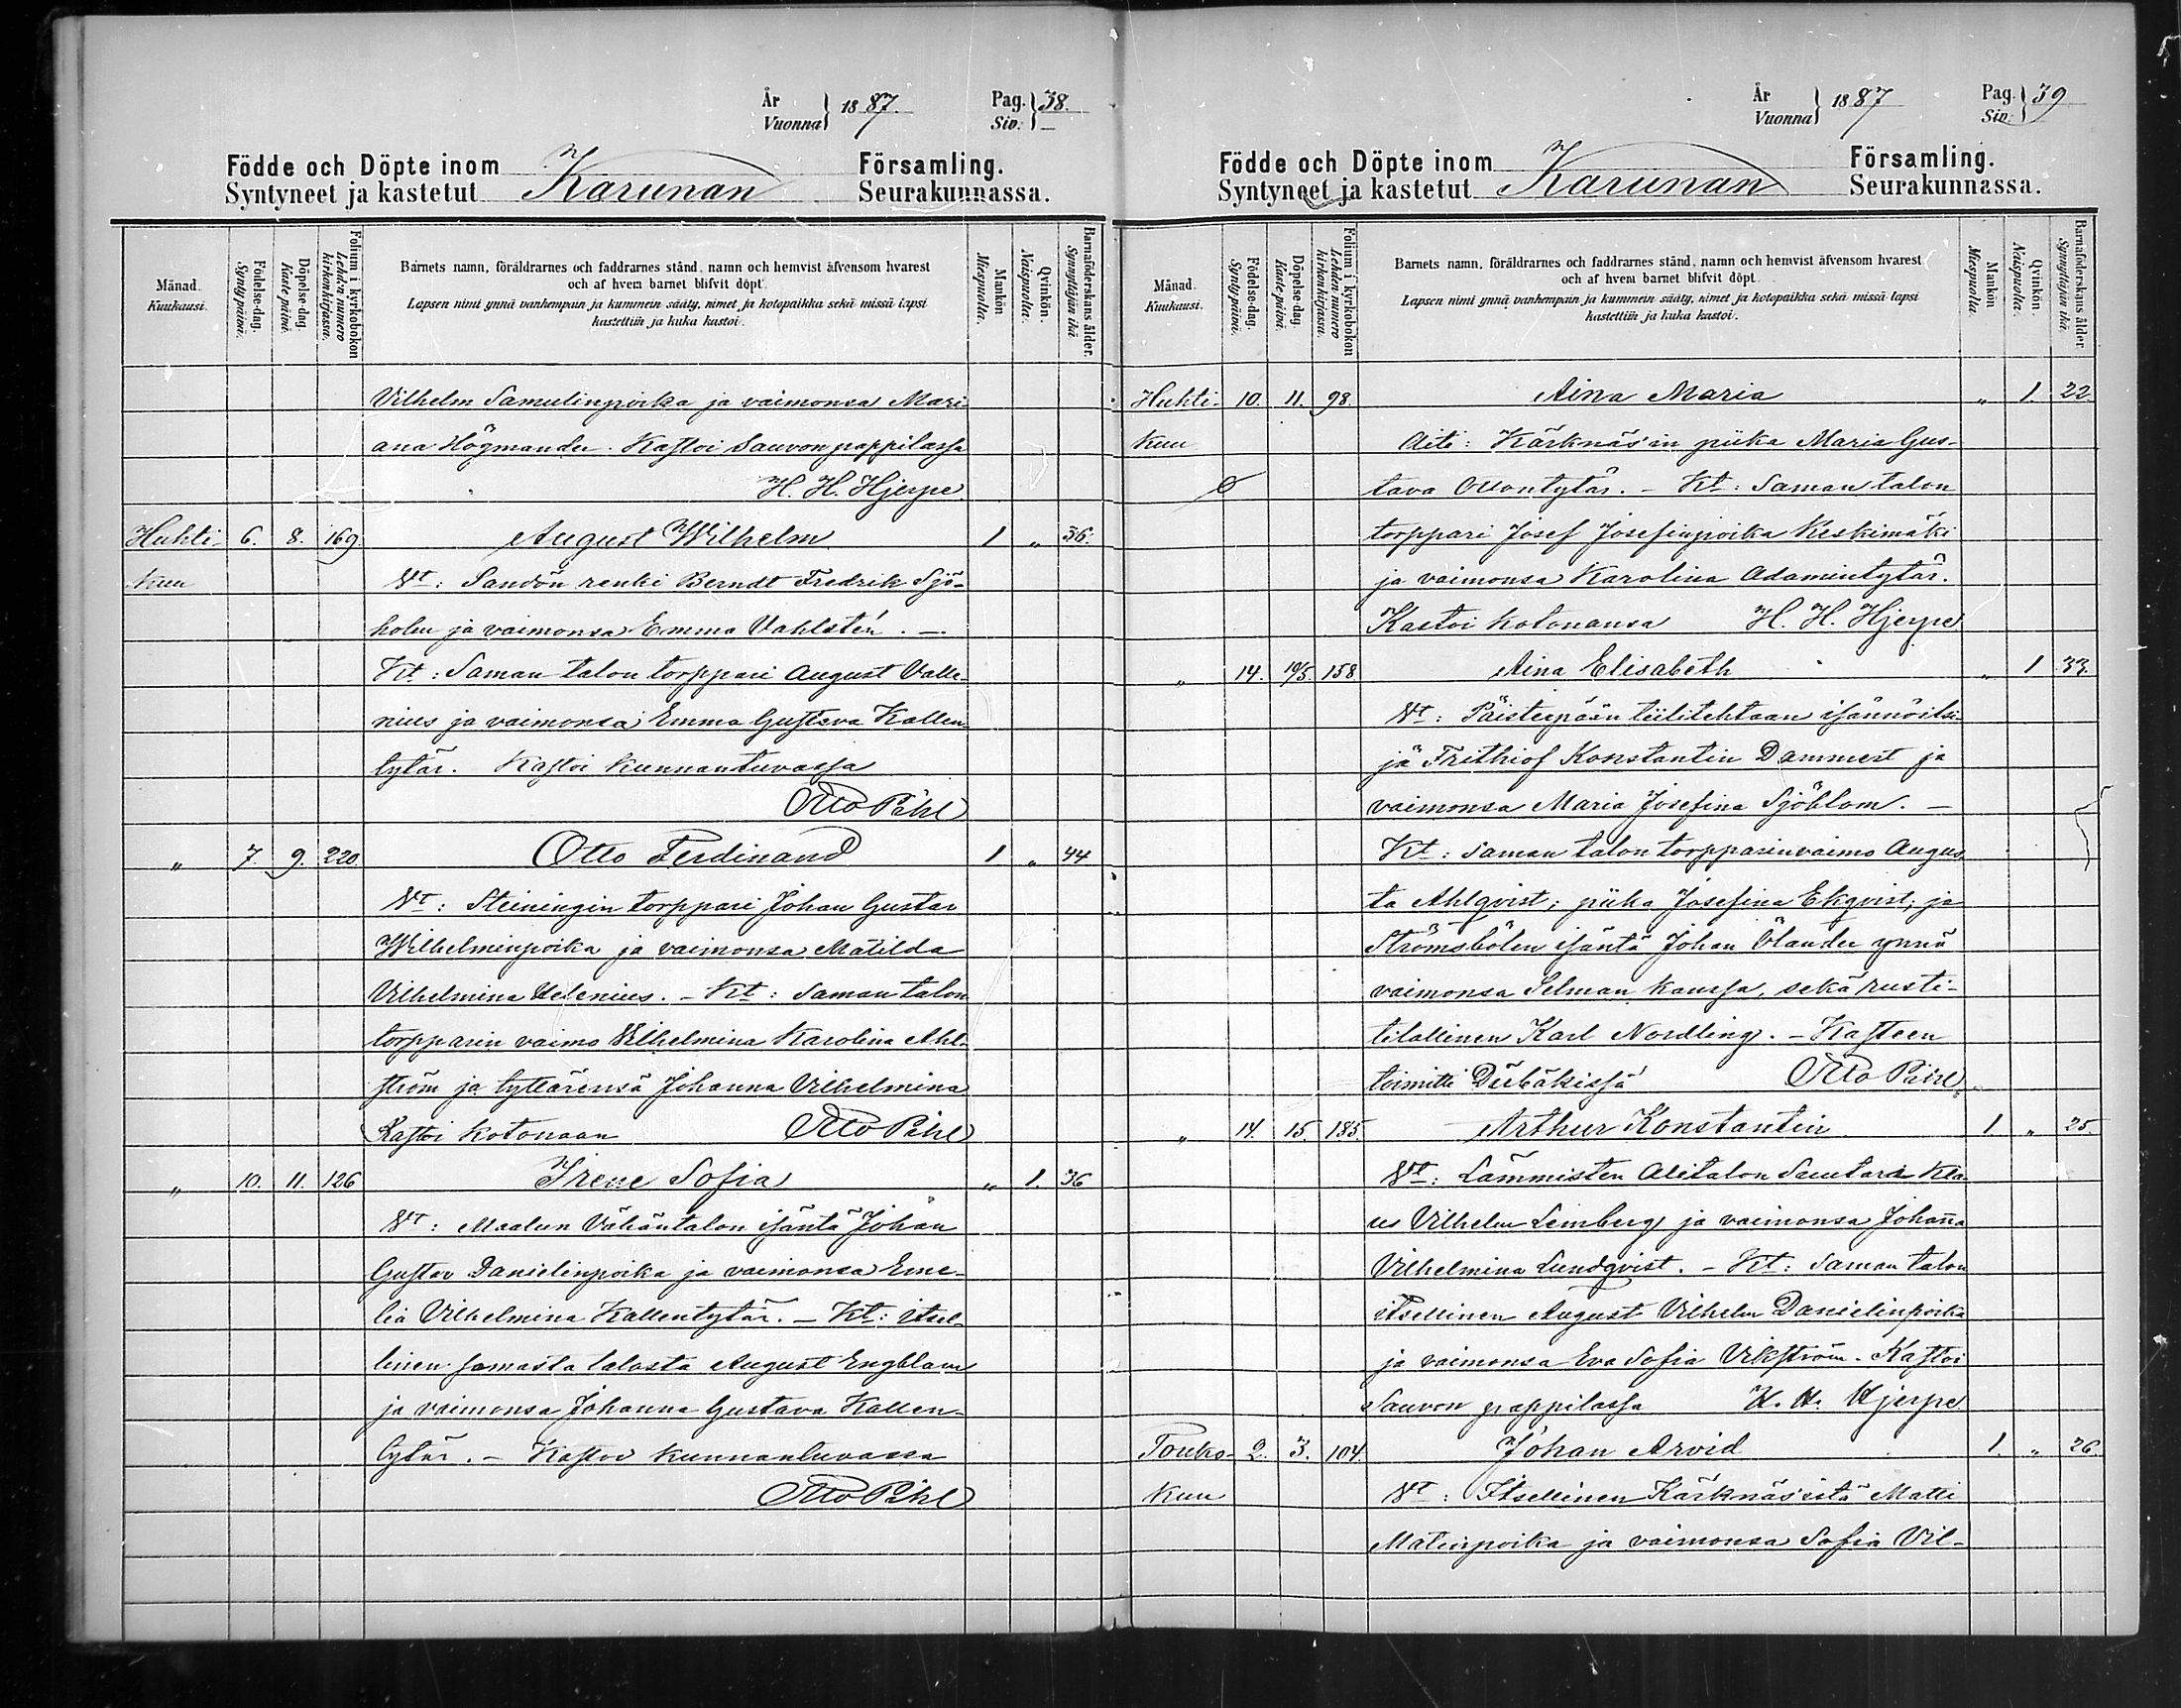 År
Vuonna } 1887. Pag.
Siv. } 38.
Födde och Döpte inom Karunan Församling.
Syntyneet ja kastetut Seurakunnassa.
Månad. Kuukausi.
Födelse-dag. Synty päivä.
Döpelse-dag. Kaste päivä.
Folium i kyrkobokon Lehden numero kirkonkirjassa.
Barnets namn, föräldrarnes och faddrarnes stånd, namn och hemvist äfvensom hvarest
och af hvem barnet blifvit döpt.
Lapsen nimi ynnä vanhempain ja kummein sääty, nimet ja kotopaikka sekä missä lapsi
kastettiin ja kuka kastoi.
Mankön. Miespuolta.
Qvinkön. Naispuolta.
Barnaföderskans ålder. Synnyttäjän ikä.
Vilhelm Samulinpoika ja vaimonsa Mari-
ana Högmander. Kastoi Sauvon pappilassa
H. H. Hjerpe
Huhti- 6. 8. 169. August Wilhelm 1 „ 36.
kuu Vt: Sandön renki Berndt Fredrik Sjö-
holm ja vaimonsa Emma Vahlstén. —
Kt: Saman talon torppari August Valle-
nius ja vaimonsa Emma Gustava Kallen-
tytär. Kastoi kunnantuvassa
Otto Pihl
„ 7. 9. 220. Otto Ferdinand 1 „ 44
Vt: Steiningin torppari Johan Gustav
Wilhelminpoika ja vaimonsa Matilda
Vilhelmina Helenius. – Kt: Saman talon
torpparin vaimo Vilhelmina Karolina Ahl-
ström ja tyttärensä Johanna Vilhelmina
Kastoi kotonaan Otto Pihl
„ 10. 11. 126 Irene Sofia „ 1. 36
Vt: Maalun Vähäntalon isäntä Johan
Gustav Danielinpoika ja vaimonsa Eme-
lia Vilhelmina Kallentytär. – Kt: itsel-
linen samasta talosta August Engblom
ja vaimonsa Johanna Gustava Kallen-
tytär. – Kastoi kunnantuvassa
Otto Pihl
År
Vuonna } 1887 Pag.
Siv. } 39
Födde och Döpte inom Karunan Församling.
Syntyneet ja kastetut Seurakunnassa.
Månad. Kuukausi.
Födelse-dag. Synty päivä.
Döpelse-dag. Kaste päivä.
Folium i kyrkobokon Lehden numero kirkonkirjassa.
Barnets namn, föräldrarnes och faddrarnes stånd, namn och hemvist äfvensom hvarest
och af hvem barnet blifvit döpt.
Lapsen nimi ynnä vanhempain ja kummein sääty, nimet ja kotopaikka sekä missä lapsi
kastettiin ja kuka kastoi.
Mankön. Miespuolta.
Qvinkön. Naispuolta.
Barnaföderskans ålder. Synnyttäjän ikä.
Huhti- 10. 11. 98. Aina Maria „ 1. 22.
kuu Äiti: Kärknäs'in piika Maria Gus-
tava Ottontytär. – Kt: Saman talon
torppari Josef Josefinpoika Keskimäki
ja vaimonsa Karolina Adamintytär.
Kastoi kotonansa H. H. Hjerpe
„ 14. 19/5. 158. Aina Elisabeth „ 1 33.
Vt: Päisterpään tiilitehtaan isännöitsi-
jä Frithiof Konstantin Dammert ja
vaimonsa Maria Josefina Sjöblom. –
Kt: Saman talon torpparinvaimo Augus-
ta Ahlqvist; piika Josefina Ekqvist; ja
Strömsbölen isäntä Johan Ölander ynnä
vaimonsa Selman kanssa, sekä rusti-
tilallinen Karl Nordling. – Kasteen
toimitti Otto Pihl
„ 14. 15. 185. Arthur Konstantin 1. „ 25.
Vt: Lämmisten Alitalon Kla-
us Vilhelm Lemberg ja vaimonsa Johanna
Vilhelmina Lundqvist. – Kt: Saman talon
itsellinen August Vilhelm Danielinpoika
ja vaimonsa Eva Sofia Vikström. Kastoi
Sauvon pappilassa H. H. Hjerpe
Touko- 2. 3. 104. Johan Arvid 1. „ 26.
kuu Vt: Itsellinen Kärknäs'istä Matti
Matinpoika ja vaimonsa Sofia Vil-